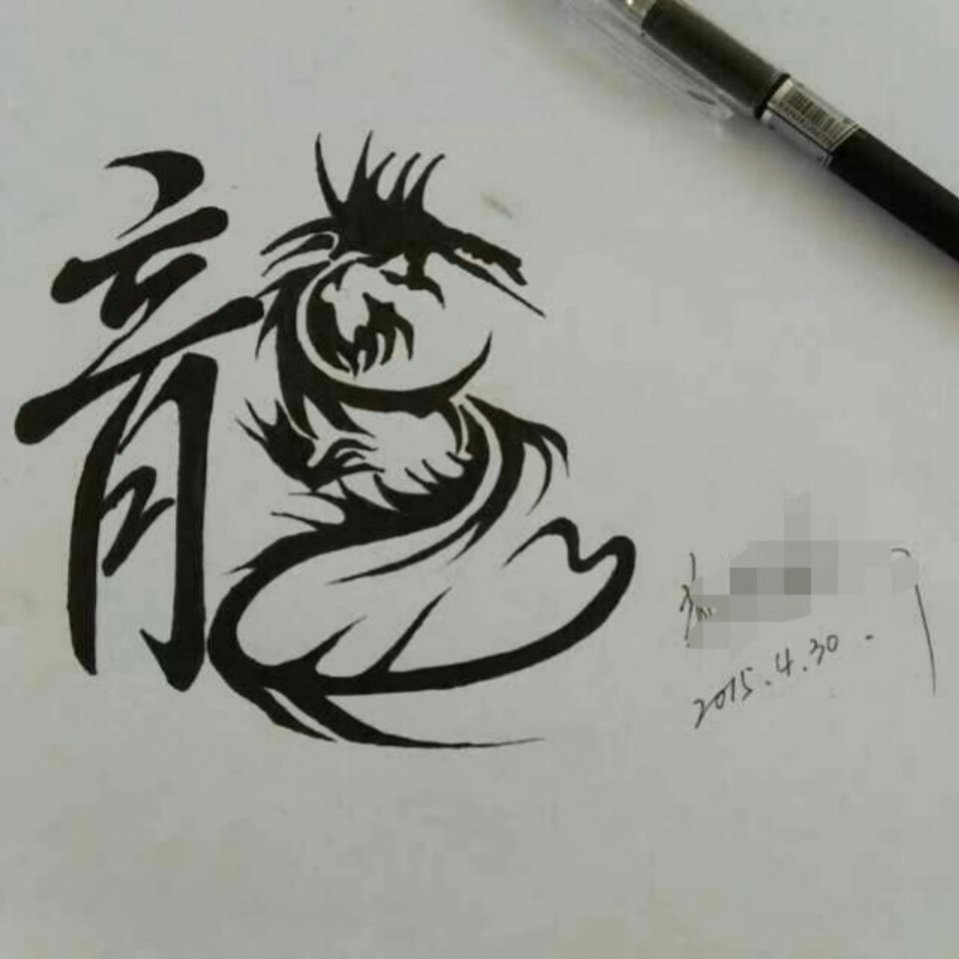 龍
2015.4.30